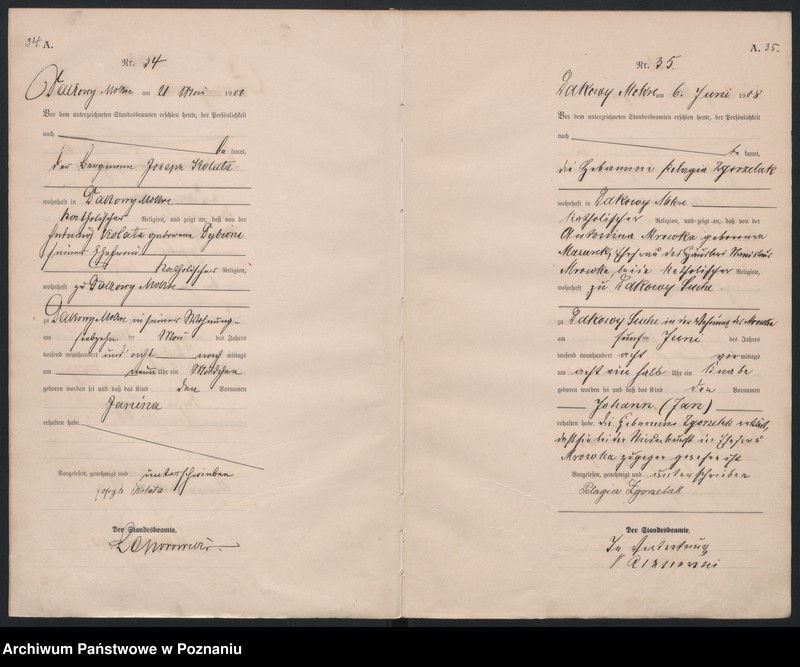 34. A.
Nr. 34
Dakowy Mokre am 21 Mai 1908
Vor dem unterzeichneten Standesbeamten erschien heute, der Persönlichkeit
nach
be kannt,
der Bergmann Joseph Kolata
wohnhaft in Dakowy Mokre
katholischer Religion, und zeigt an, daß von der
Kolata geborene
seiner Ehefrau
katholischer Religion,
wohnhaft zu Dakowy Mokre
zu Dakowy Mokre in seiner Wohnung
am siebzehn ten Mai des Jahres
tausend neunhundert und acht nach mittags
um neun Uhr ein Mädchen
geboren worden sei und daß das Kind den Vornamen
Janina
erhalten habe.
Vorgelesen, genehmigt und unterschrieben
Joseph Kolata
Der Standesbeamte.
A. 35.
Nr. 35
Dakowy Mokre am 6. Juni 1908
Vor dem unterzeichneten Standesbeamten erschien heute, der Persönlichkeit
nach
be kannt,
die Hebamme Pelagia Zgorzelak
wohnhaft in Dakowy Mokre
katholischer Religion, und zeigt an, daß von der
Antonina Mrowka geborene
Ehefrau des Häuslers Stanislaus
Mrowka, beide katholischer Religion,
wohnhaft zu Dakowy Suche
zu Dakowy Suche in der Wohnung der Mrowka
am fünf ten Juni des Jahres
tausend neunhundert acht vor mittags
um acht ein halb Uhr ein Knabe
geboren worden sei und daß das Kind den Vornamen
Johann (Jan)
erhalten habe. die Hebamme Zgorzelak erklärt,
daß sie bei der Niederkunft der Ehefrau
Mrowka zugegen gewesen ist
Vorgelesen, genehmigt und unterschrieben
Pelagia Zgorzelak
Der Standesbeamte.
In Vertretung
Archiwum Państwowe w Poznaniu